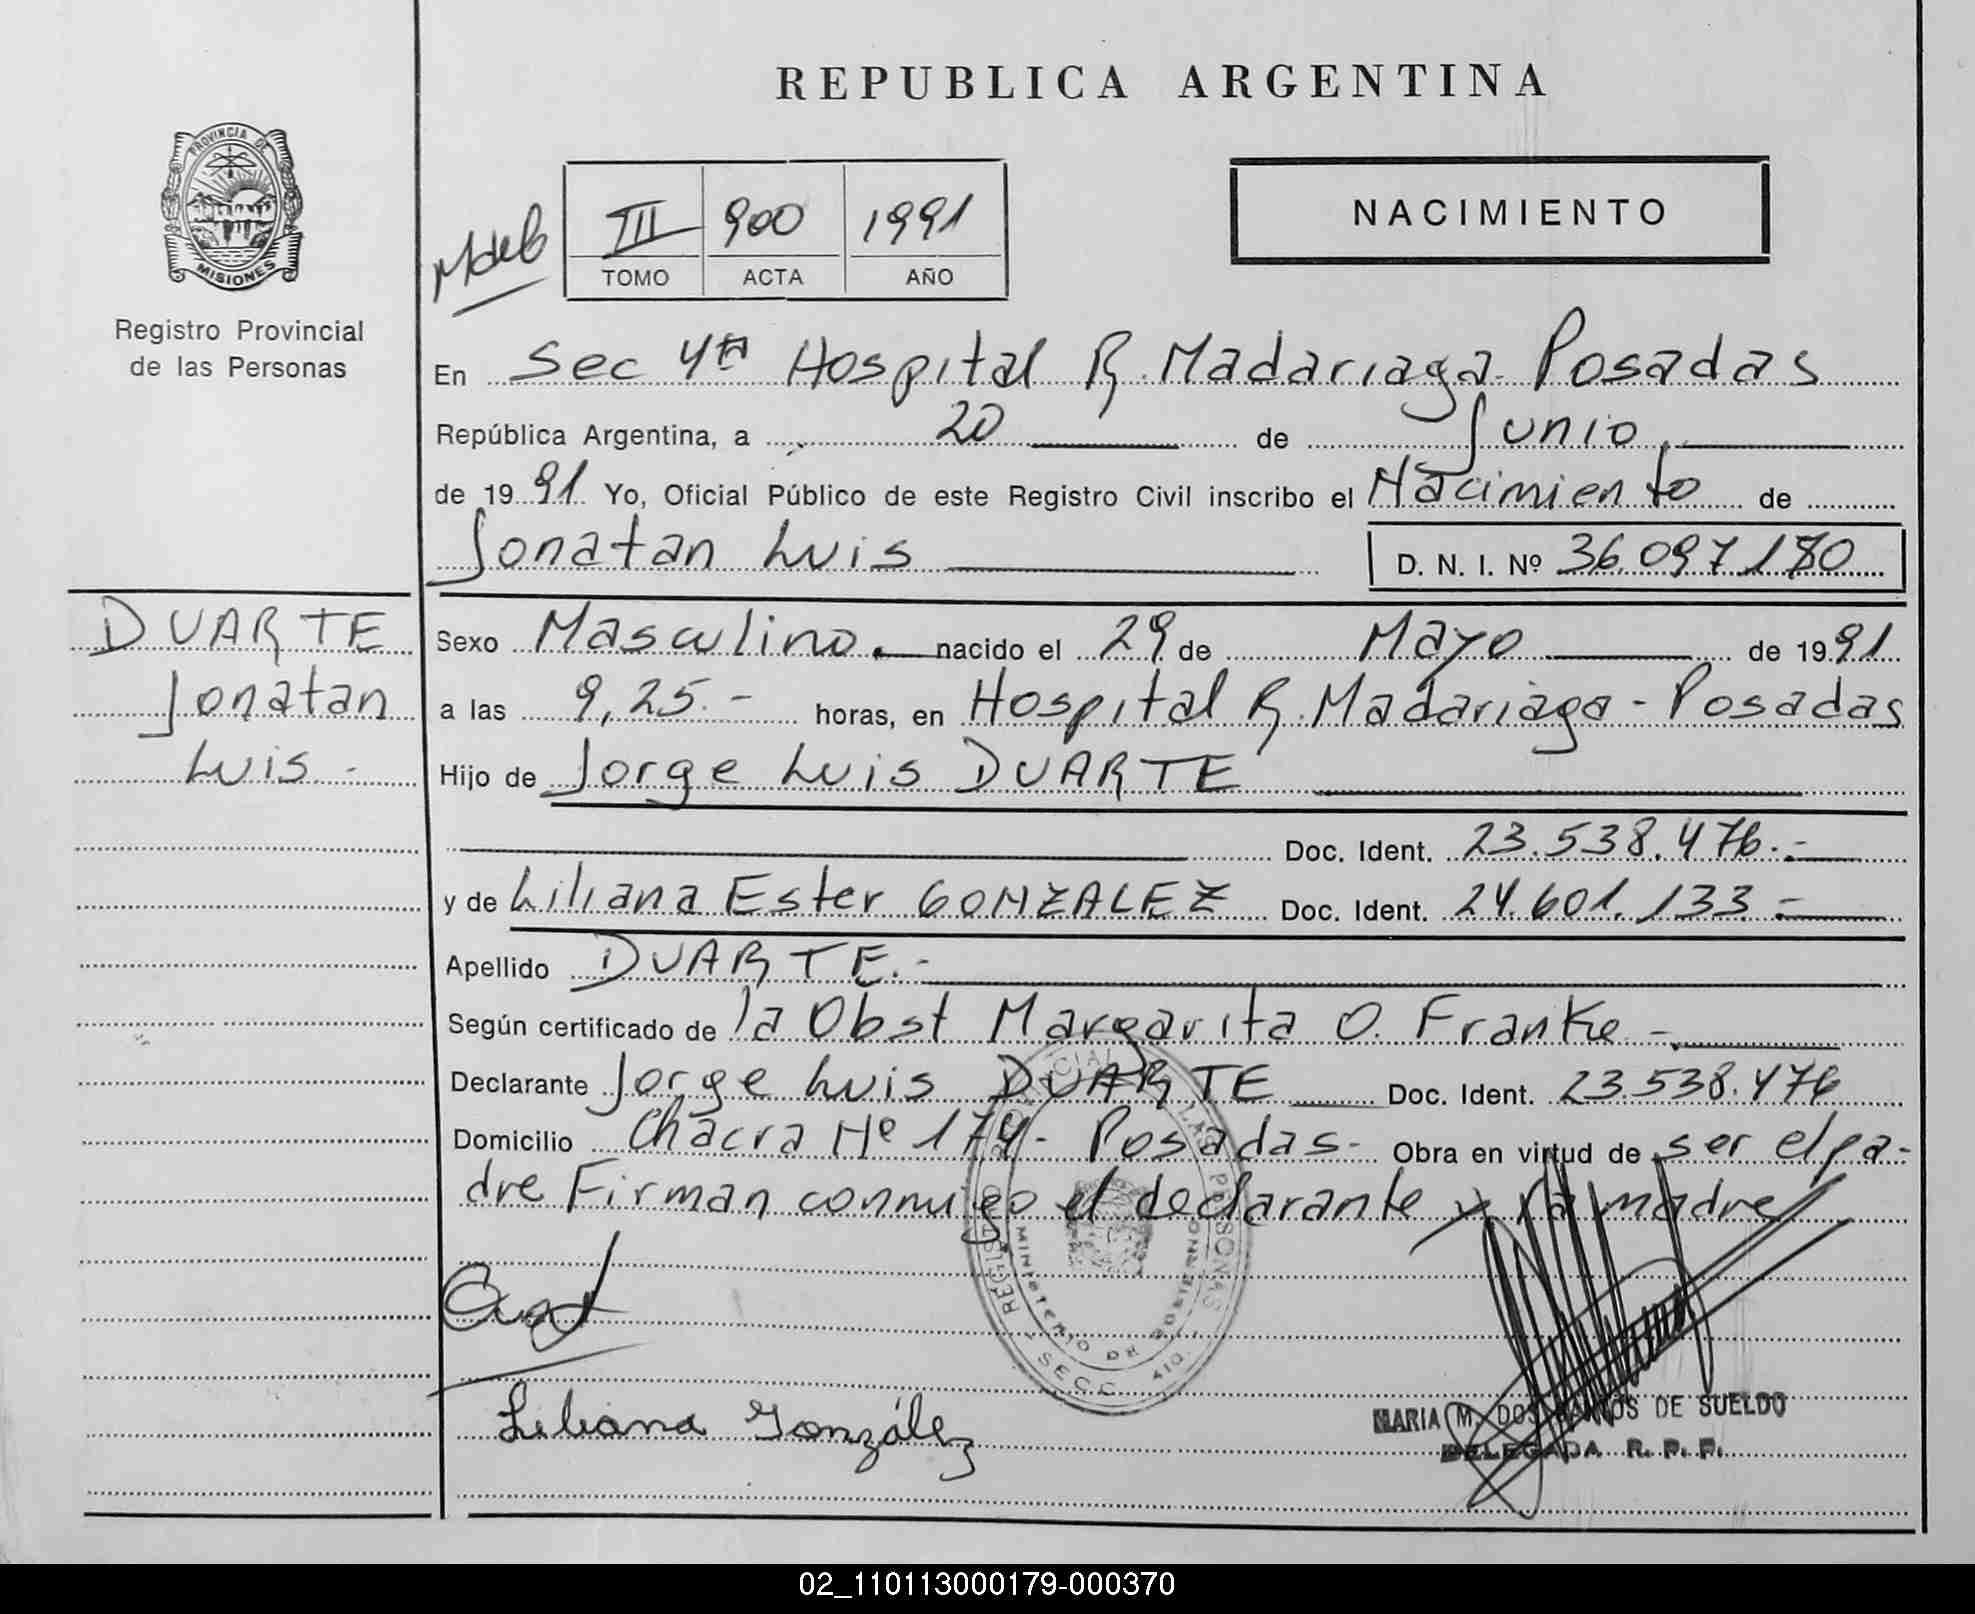 REPUBLICA ARGENTINA
PROVINCIA DE
MISIONES
Registro Provincial
de las Personas
III 900 1991
TOMO ACTA AÑO
NACIMIENTO
En Sec 4ta Hospital R. Madariaga Posadas
República Argentina, a 20 de Junio
de 1991 Yo, Oficial Público de este Registro Civil inscribo el Nacimiento de
Jonatan Luis
D. N. I. Nº 36.097.180
DUARTE
Jonatan
Luis.-
Sexo Masculino. nacido el 29 de Mayo de 1991
a las 9,25.- horas, en Hospital R. Madariaga - Posadas
Hijo de Jorge Luis DUARTE
Doc. Ident. 23.538.476.-
y de Liliana Ester GONZALEZ Doc. Ident. 24.601.133.-
Apellido DUARTE.-
Según certificado de la Obst Margarita O. Franke-
Declarante Jorge Luis DUARTE Doc. Ident. 23.538.476
Domicilio Chacra Nº 174- Posadas- Obra en virtud de ser el pa-
dre Firman conmigo el declarante y la madre
Liliana González
MARIA M. DOS SANTOS DE SUELDO
DELEGADA R. P. P.
02_110113000179-000370